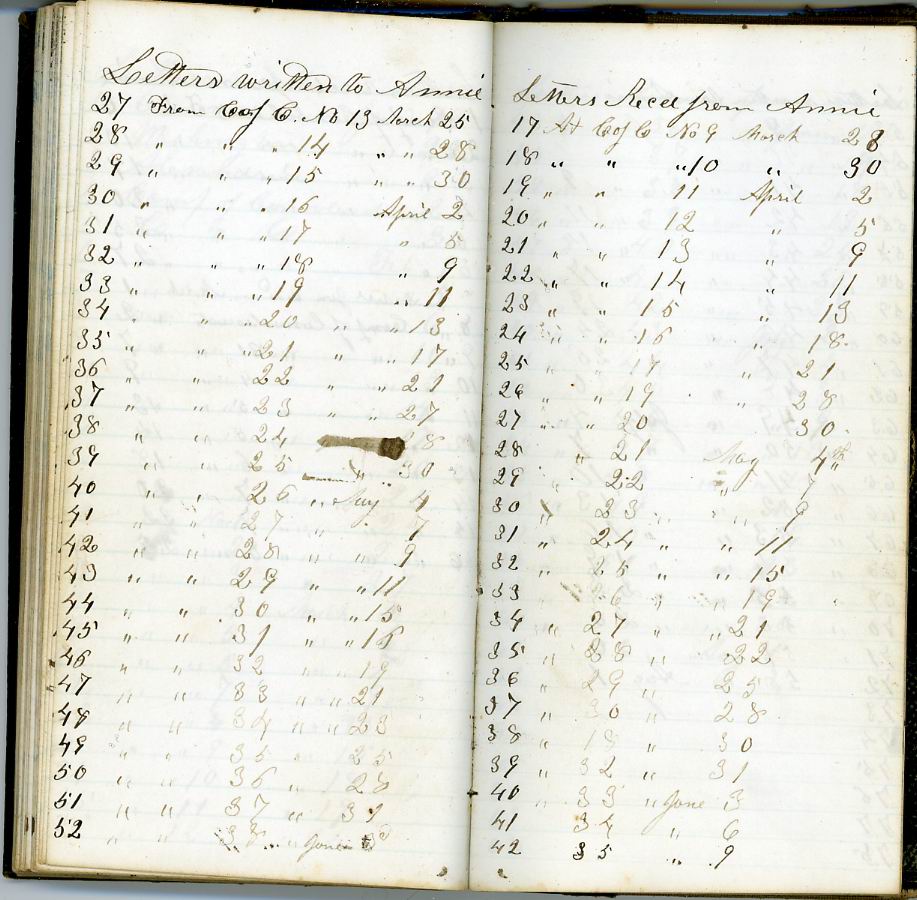 Letters written to Annie
27 From Co of C. No 13 March 25
28 " " " 14 " " 28
29 " " " 15 " " 30
30 " " " 16 April 2
31 " " " 17 " 5
32 " " " 18 " 9
33 " " " 19 " 11
34 " " 20 " " 13
35 " " " 21 " " 17
36 " " 22 " " 21
37 " " 23 " " 27
38 " " 24 28
39 " " 25 " 30
40 " " 26 " May 4
41 " " 27 " 7
42 " " 28 " " 9
43 " " 29 " " 11
44 " " 30 " " 15
45 " " 31 " " 16
46 " " 32 " " 19
47 " " 33 " " 21
48 " " 34 " " 23
49 " " 35 " 25
50 " " 36 " 28
51 " " 37 " 31
52 " " 38 " June
Letters Recd from Annie
17 At Co of C No 9 March 28
18 " " " 10 " 30
19 " " 11 April 2
20 " " 12 " 5
21 " " 13 " 9
22 " " 14 " 11
23 " " 15 " 13
24 " " 16 " 18
25 " " 17 " 21
26 " " 19 " 28
27 " " 20 30
28 " 21 May 4th
29 " 22 " 7
30 " 23 " " 9
31 " 24 " " 11
32 " 25 " " 15
33 26 " 19
34 " 27 " " 21
35 " 28 " 22
36 " 29 " 25
37 " 30 " 28
38 " 18 " 30
39 " 32 " 31
40 " 33 " June 3
41 34 " 6
42 35 " 9